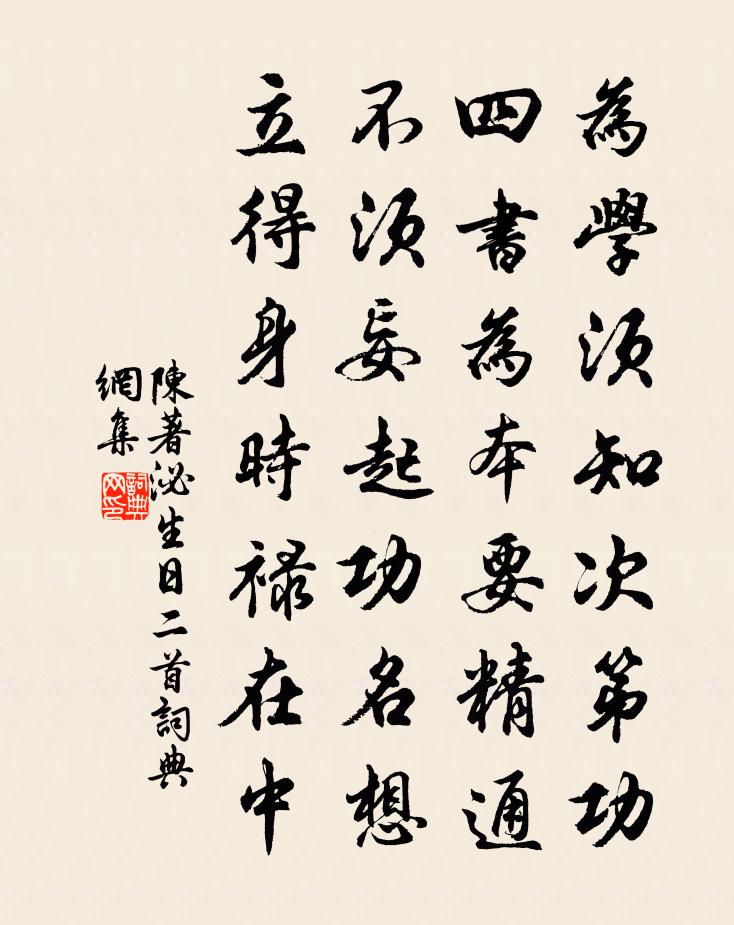 為學須知次第功
四書為本要精通
不須妄起功名想
立得身時祿在中
陳著泌生日二首詞典
網集
詞典
网印